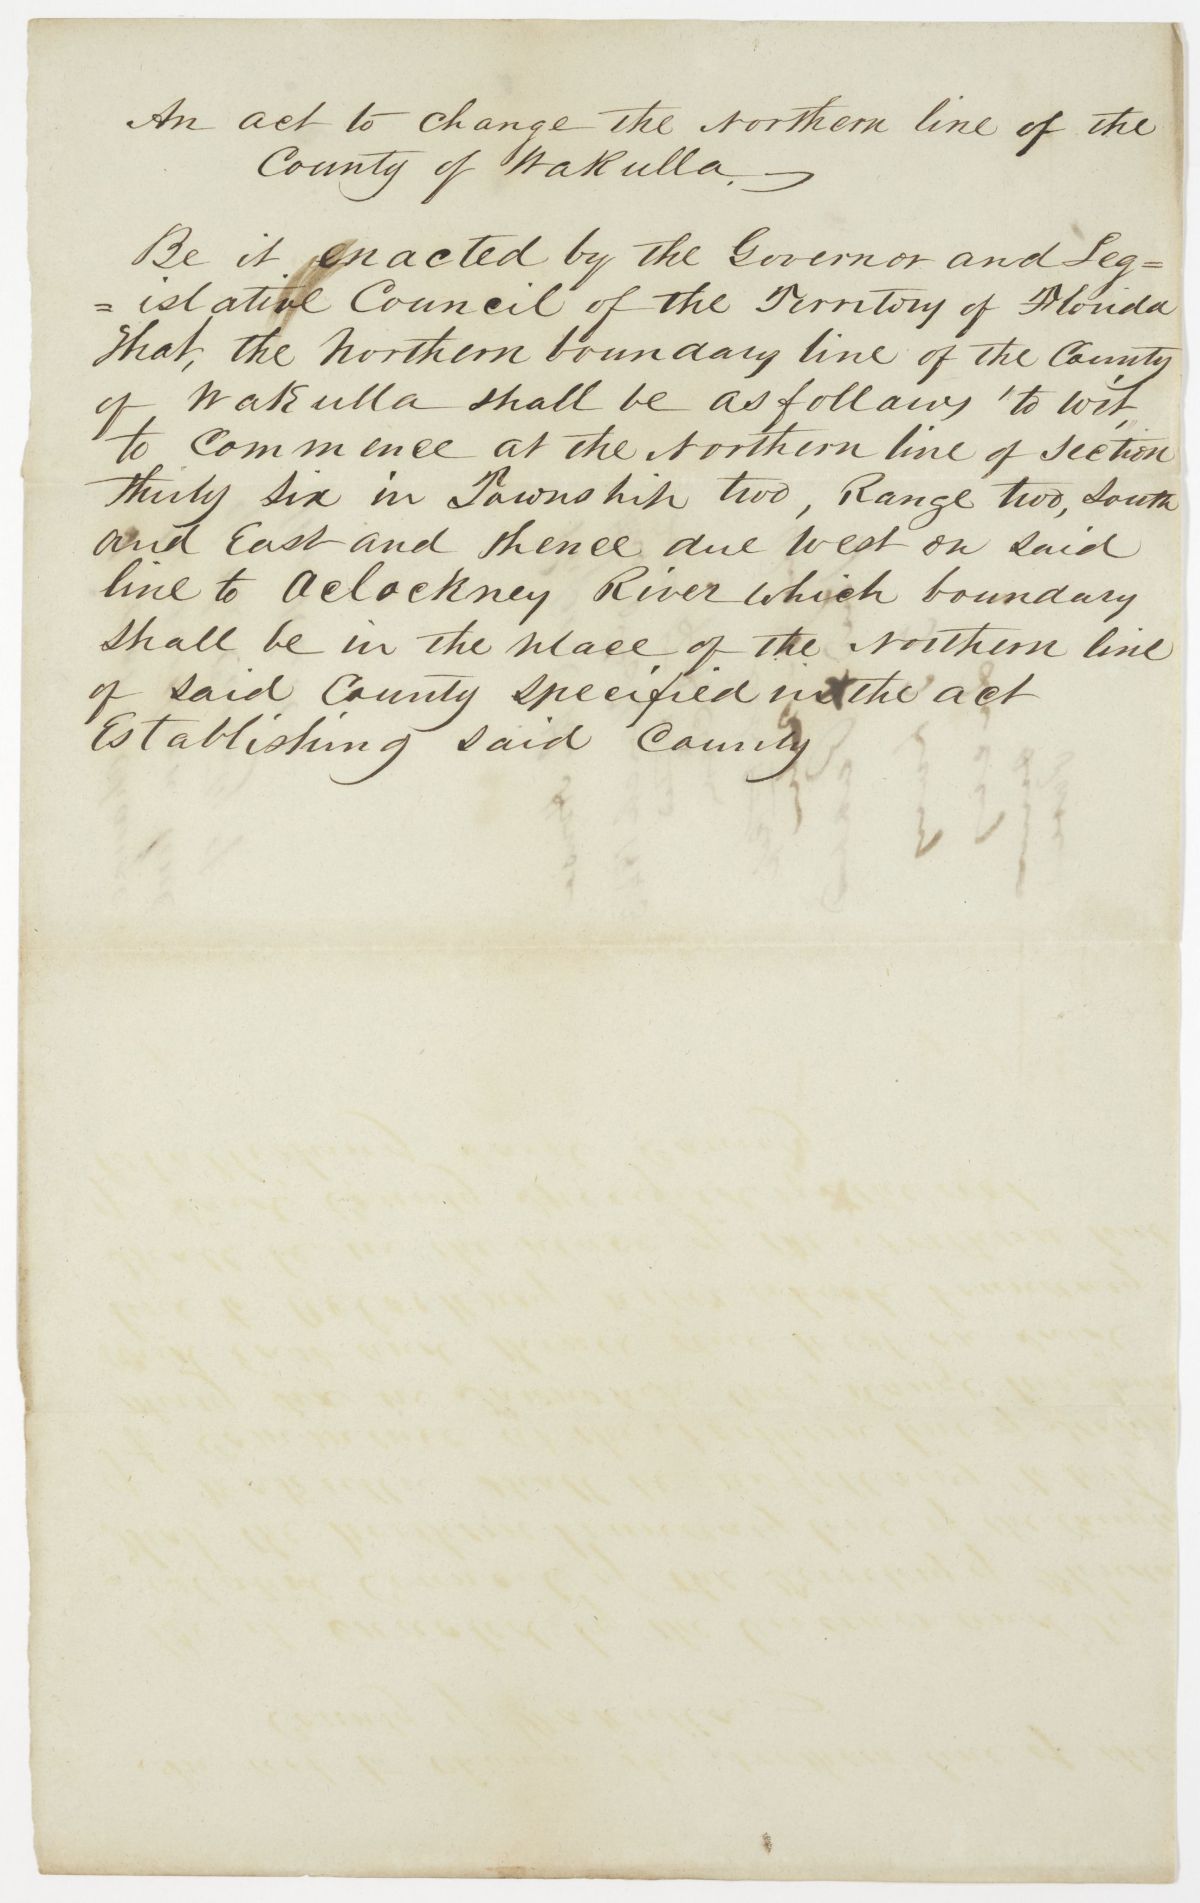 An act to change the Northern line of the
County of Wakulla.
Be it enacted by the Governor and Leg=
= islative Council of the Territory of Florida
That, the Northern boundary line of the County
of Wakulla shall be as follows 'to wit,
to Commence at the Northern line of Section
thirty six in Township two, Range two, South
and East and thence due west on said
line to Oclockney River which boundary
shall be in the place of the Northern line
of said County specified in the act
Establishing said County